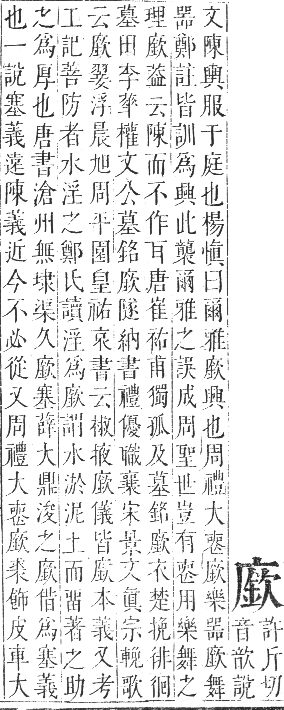 廞
許斤切
音歆說
文陳輿服于庭也楊慎曰爾雅廞興也周禮大喪廞樂器廞舞
器鄭註皆訓為興此襲爾雅之誤成周聖世豈有喪用樂舞之
理廞葢云陳而不作耳唐崔祐甫獨孤及墓銘廞衣楚挽徘徊
墓田李華權文公墓銘廞隧納書禮優職襄宋景文眞宗輓歌
云廞翣浮晨旭周平園皇祐哀書云椒掖廞儀皆廞本義又考
工記善防者水淫之鄭氏讀淫為廞謂水淤泥土而畱著之助
之為厚也唐書滄州無埭渠久廞塞薛大鼎浚之廞借為塞義
也一說塞義遠陳義近今不必從又周禮大喪廞裘飾皮車大